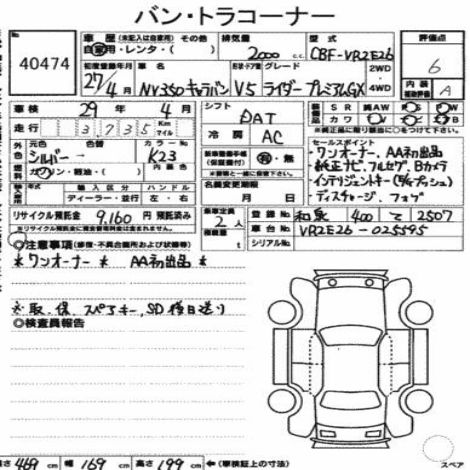 バン・トラコーナー
No. 40474
車歴 (未記入は自家用) その他 自家用・レンタ・( )
排気量 2000 c.c.
型式 CBF-VR2E26
評価点 6
初度登録年月 27/4月
車名 NV350キャラバン
形状・ドア数 V5
グレード ライダー プレミアムGX
2WD・4WD
内装 A
車検 29年 4月
シフト DAT
装備品 SR AW PS PW
カワ
走行 3735 Km マイル
冷房 AC
※純正品に限り該当に○をつけて下さい
外色 元色 シルバー 色替 カラーNo K23
セールスポイント
ワンオーナー、AA初出品
純正ナビ、フルセグ、Bカメラ
インテリジェントキー(プッシュ)
ディスチャージ、フォグ
燃料 ガソリン・軽油・( )
有・無
輸入車 輸入区分 ハンドル
ディーラー・並行 左・右
名義変更期限 月 日
リサイクル預託金 9,160 円 預託済み
乗車定員 2人
登録No. 和泉 400 て 2507
車台No. VR2E26-025595
シリアルNo.
◎注意事項 (修復・不具合箇所および状態等)
* ワンオーナー * AA初出品 *
取、保、スペアキー、SD後日送り
◎検査員報告
長さ 469 cm 幅 169 cm 高さ 199 cm ←(車検証上の寸法)
スペア